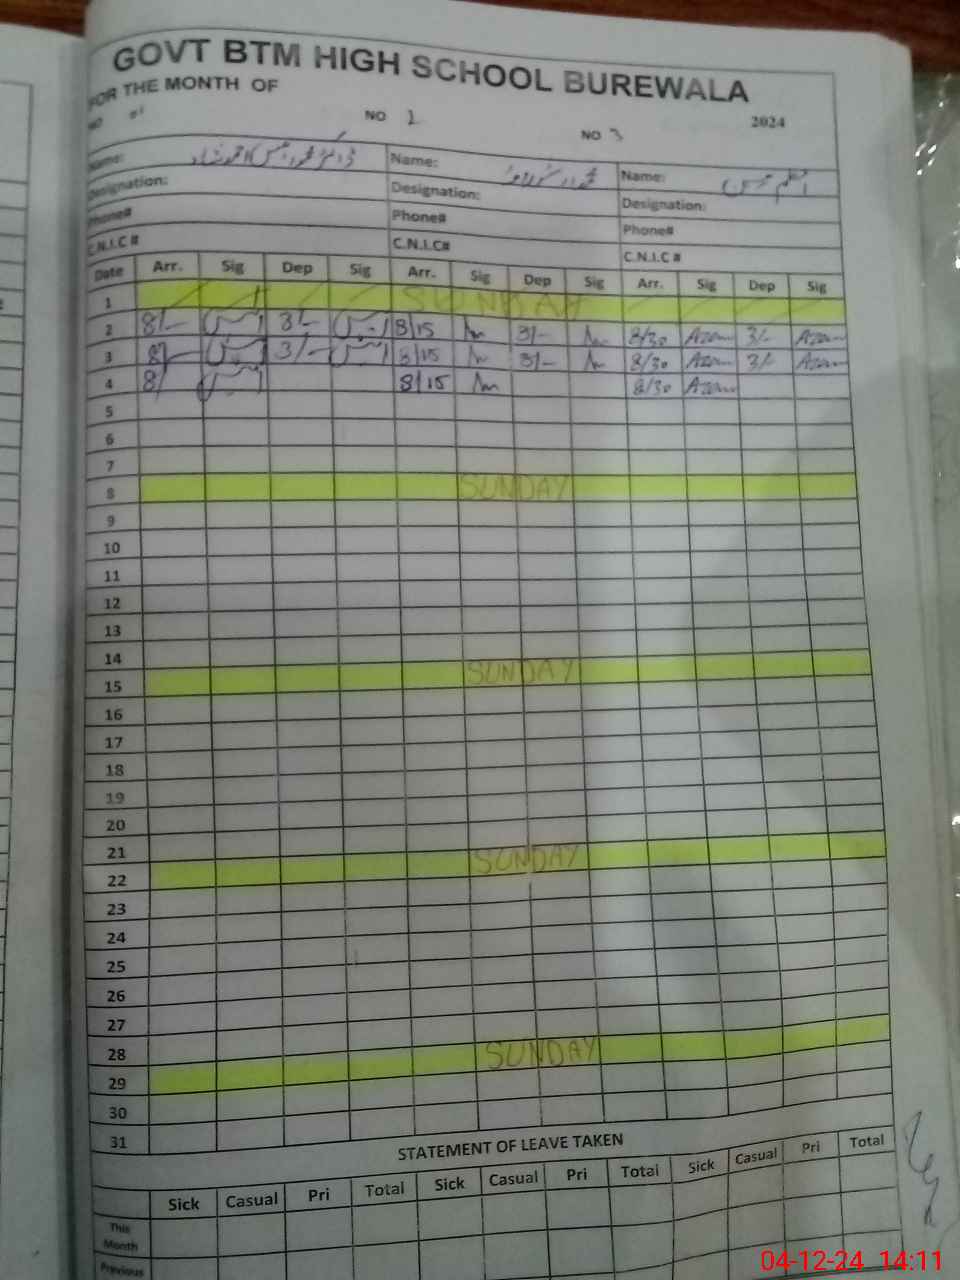 GOVT BTM HIGH SCHOOL BUREWALA
FOR THE MONTH OF
2024
NO 01 NO 2 NO 3
Name: Name: Name:
Designation: Designation: Designation:
Phone# Phone# Phone#
C.N.I.C # C.N.I.C# C.N.I.C #
Date Arr. Sig Dep Sig Arr. Sig Dep Sig Arr. Sig Dep Sig
1 SUNDAY
2 8/- 3/- 8/15 3/- 8/30 Azam 3/- Azam
3 8/- 3/- 8/15 3/- 8/30 Azam 3/- Azam
4 8/ 8/15 8/30 Azam
5
6
7
8 SUNDAY
9
10
11
12
13
14
15 SUNDAY
16
17
18
19
20
21
22 SUNDAY
23
24
25
26
27
28
29 SUNDAY
30
31
STATEMENT OF LEAVE TAKEN
Sick Casual Pri Total Sick Casual Pri Total Sick Casual Pri Total
This Month
Previous
04-12-24 14:11